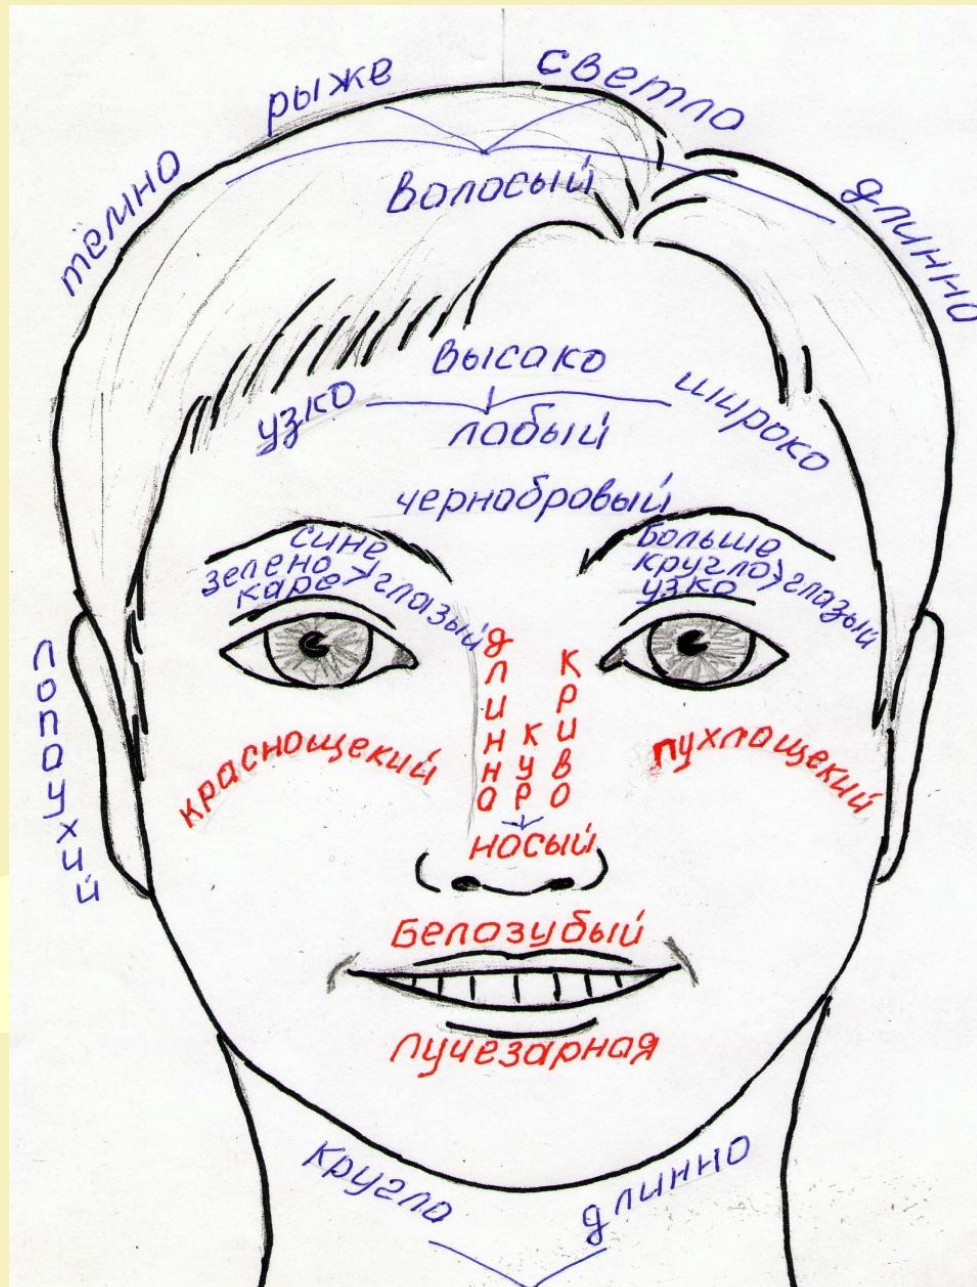 рыже
светло
тёмно
длинно
волосый
высако
узко
широко
лобый
чернобровый
сине
зелено
каре > глазый
больше
кругло > глазый
узко
лопоухий
длинно
курно
криво
носый
краснощекий
пухлощекий
Белозубый
лучезарная
кругло
длинно